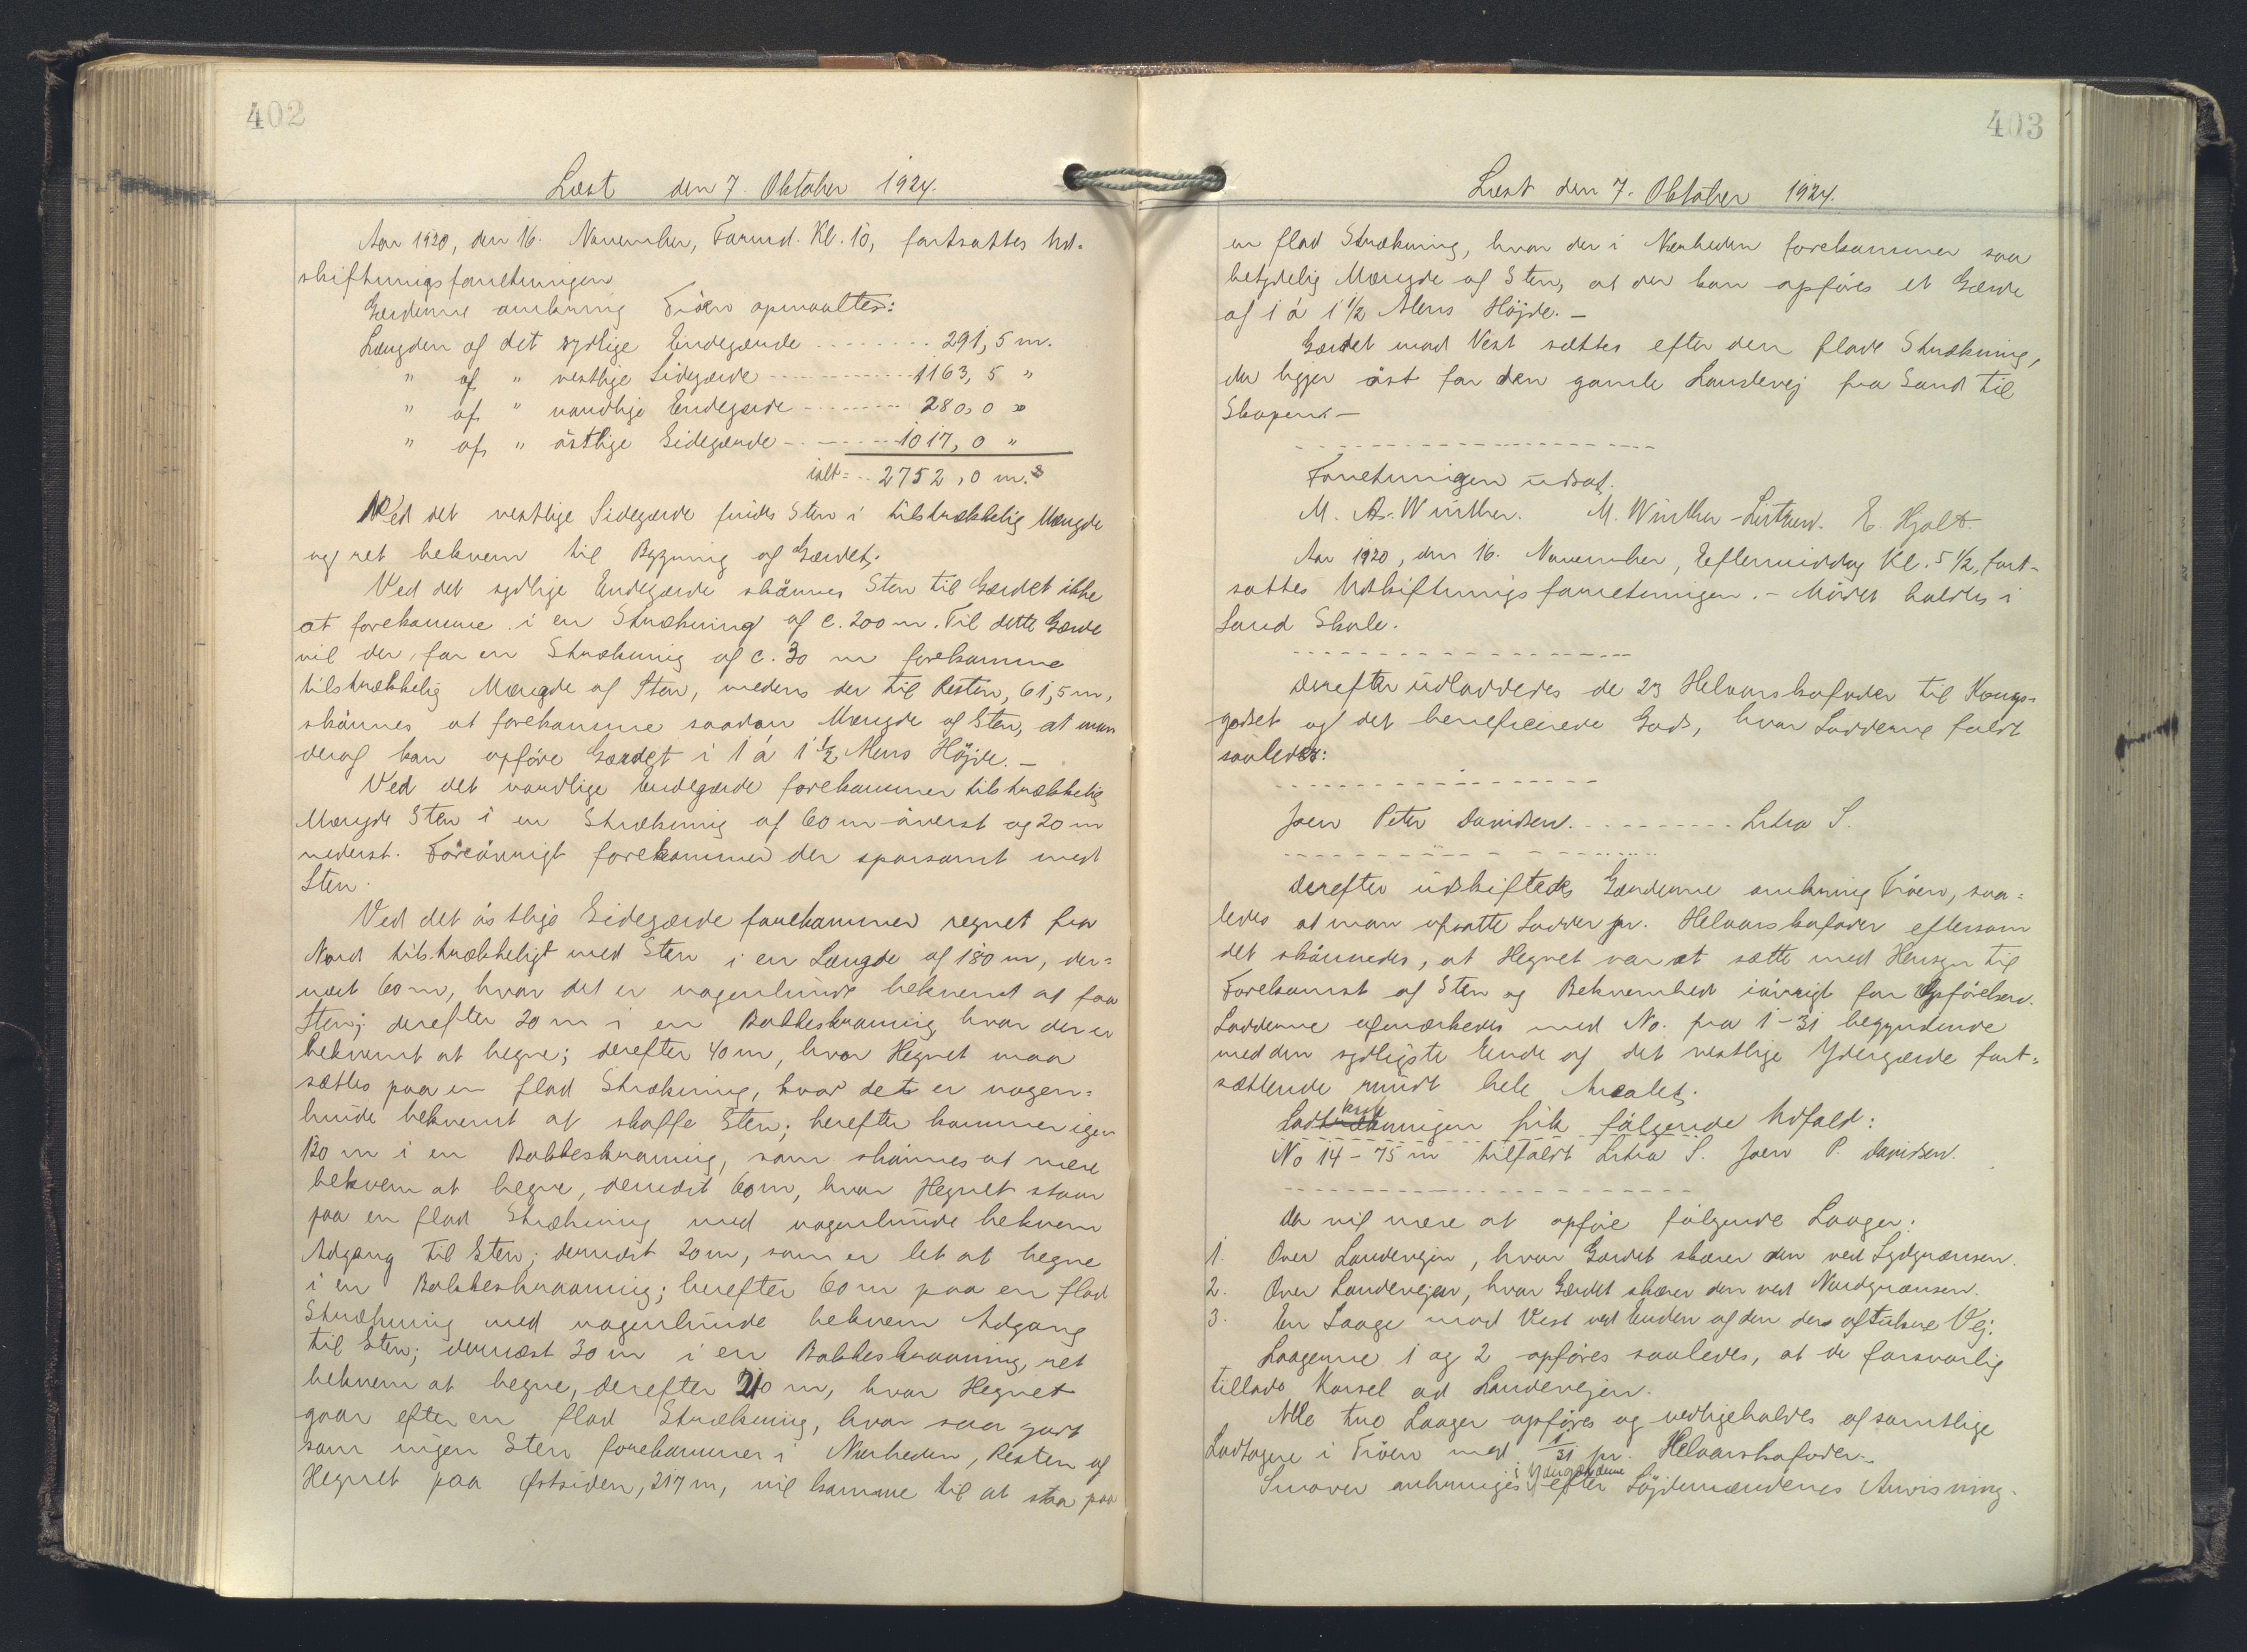 402
Læst den 7. Oktober 1924.
Aar 1920, den 16. November, Formd. Kl. 10, fortsattes Ud-
skiftningsforretningen
Gærderne omkring Tröen opmaaltes:
Længden af det sydlige Endegærde ........ 291,5 m.
" af " vestlige Sidegærde ........ 1163,5 "
" af " nordlige Endegærde ........ 280,0 "
" af " östlige Sidegærde ........ 1017,0 "
ialt = .. 2752,0 m.
Ved det vestlige Sidegærde findes Sten i tilstrækkelig Mængde
og ret bekvem til Bygning af Gærdet.
Ved det sydlige Endegærde skönnes Sten til Gærdet ikke
at forekomme i en Strækning af c. 200 m. Til dette Gærde
vil der, for en Strækning af c. 30 m forekomme
tilstrækkelig Mængde af Sten, medens der til Resten, 61,5 m,
skönnes at forekomme saadan Mængde af Sten, at man
deraf kan opföre Gærdet i 1 á 1 1/2 Alens Höjde. —
Ved det nordlige Endegærde forekommer tilstrækkelig
Mængde Sten i en Strækning af 60 m överst og 20 m
nederst. Foröövrigt forekommer der sparsomt med
Sten.
Ved det östlige Sidegærde forekommer regnet fra
Nord tilstrækkeligt med Sten i en Længde af 180 m, der=
næst 60 m, hvor det er nogenlunde bekvemt at faa
Sten; derefter 20 m i en Bakkeskraaning hvor der er
bekvemt at hegne; derefter 40 m, hvor Hegnet maa
sættes paa en flad Strækning, hvor det er nogen=
lunde bekvemt at skaffe Sten; herefter kommer igen
120 m i en Bakkeskraaning, som skönnes at være
bekvem at hegne, dernæst 60 m, hvor Hegnet staar
paa en flad Strækning med nogenlunde bekvem
Adgang til Sten; dernæst 20 m, som er let at hegne
i en Bakkeskraaning; herefter 60 m paa en flad
Strækning med nogenlunde bekvem Adgang
til Sten; dernæst 30 m i en Bakkeskraaning, ret
bekvem at hegne, derefter 210 m, hvor Hegnet
gaar efter en flad Strækning, hvor saa godt
som ingen Sten forekommer i Nærheden, Resten af
Hegnet paa Østsiden, 217 m, vil komme til at staa paa
403
Læst den 7. Oktober 1924.
en flad Strækning, hvor der i Nærheden forekommer saa
betydelig Mængde af Sten, at der kan opföres et Gærde
af 1 á 1 1/2 Alens Höjde. —
Gærdet mod Vest sættes efter den flade Strækning,
der ligger öst for den gamle Landevej fra Sand til
Skopen. —
Forretningen udsat.
M. A. Winther. M. Winther-Lützen. E. Hjalt.
Aar 1920, den 16. November, Eftermiddag Kl. 5 1/2, fort-
sattes Udskiftningsforretningen. — Mödet holdtes i
Sand Skole.
Derefter udloddedes de 23 Helaarskofoder til Kongs-
godset og det beneficerede Gods, hvor Lodderne faldt
saaledes:
Joen Peter Davidsen. .......... Litra S.
Derefter udskiftedes Gærderne omkring Tröen, saa=
ledes at man afsatte Lodder pr. Helaarskofoder eftersom
det skönnedes, at Hegnet var at sætte med Hensyn til
Forekomst af Sten og Bekvemhed iövrigt for Opförelsen.
Lodderne afmærkedes med No. fra 1–31 begyndende
med den sydligste Ende af det vestlige Ydergærde fort=
sættende rundt hele Arealet.
Lodtrækningen fik fölgende Udfald:
No 14 – 75 m tilfaldt Litra S. Joen P. Davidsen.
Der vil være at opföre fölgende Laager:
1. Over Landevejen, hvor Gærdet skærer den ved Sydgrænsen.
2. Over Landevejen, hvor Gærdet skærer den ved Nordgrænsen.
3. En Laage mod Vest ved Enden af den der aftukne Vej.
Laagerne 1 og 2 opföres saaledes, at de forsvarlig
tillade Kørsel ad Landevejen.
Alle tre Laager opføres og vedligeholdes af samtlige
Lodtagere i Tröen med 1/31 pr. Helaarskofoder. —
Smover anbringes i Ydergærderne efter Sögdemændenes Anvisning.